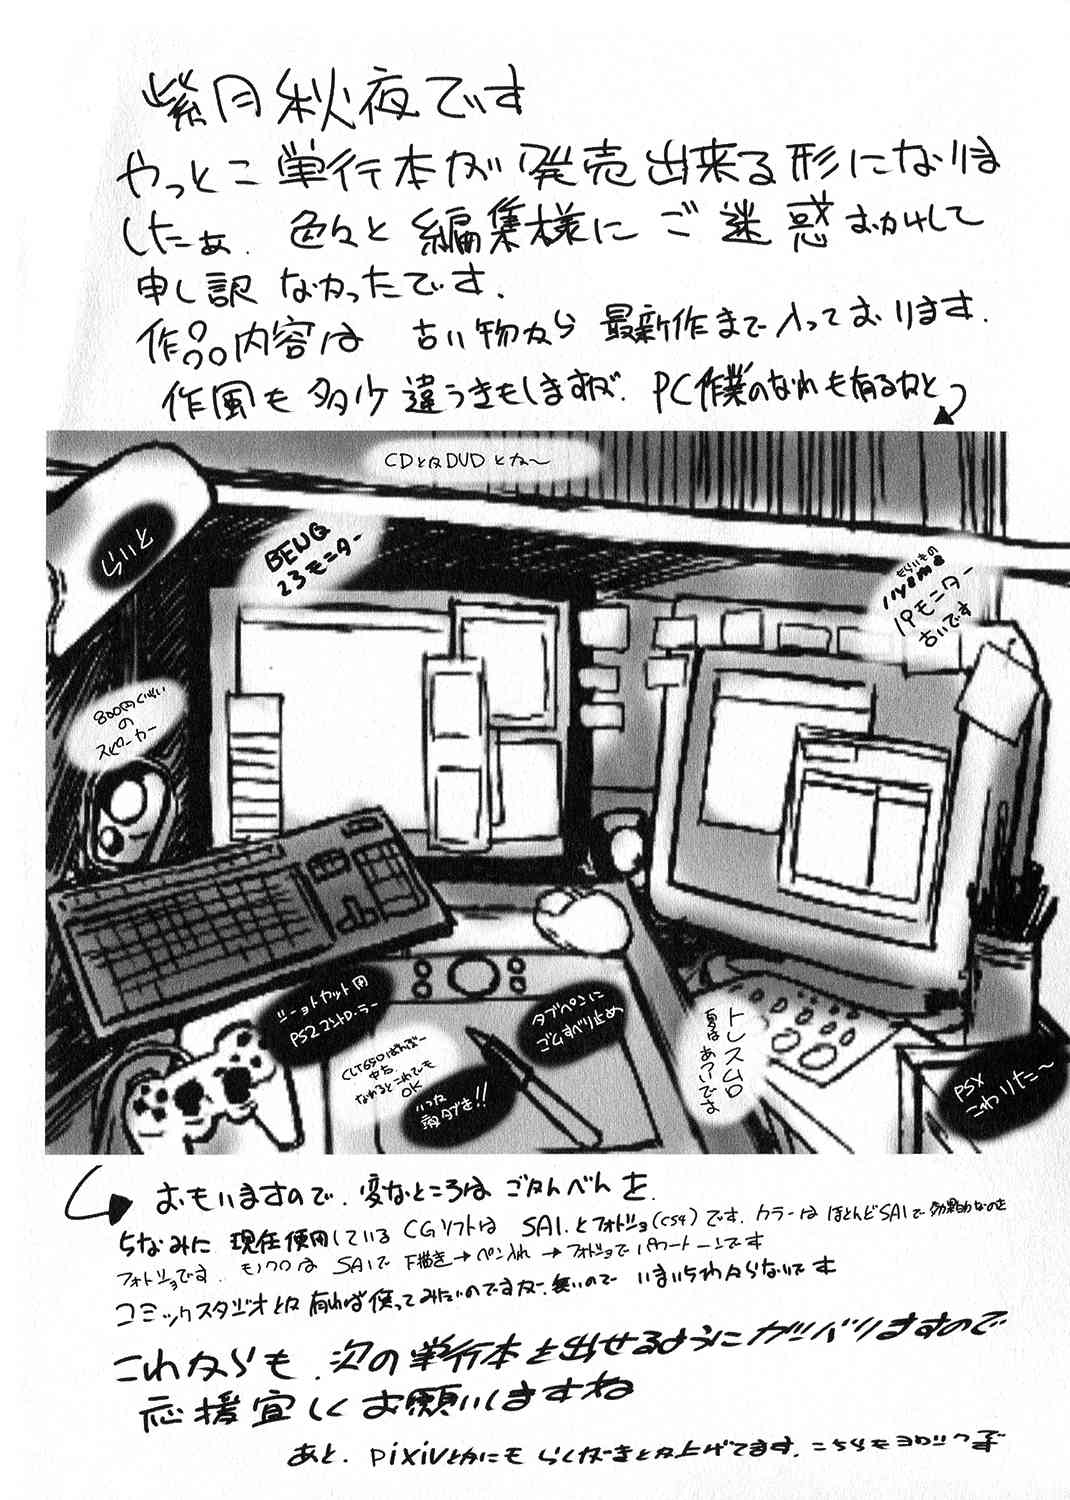 紫月秋夜です
やっとこ単行本が発売出来る形になりま
したぁ. 色々と編集様にご迷惑おかけして
申し訳なかったです.
作品内容は 古い物から 最新作まで入っております.
作風も多少違うきもしますが. PC作業のなれも有るかと
CDとかDVDとか〜
らいと
BENQ
23モニター
もらいもの
iiyama
19モニター
古いです
800円ぐらい
の
スピーカー
ショートカット用
PS2コントローラー
タブペンに
ゴムすべり止め
中古
なれるとこれでも
OK
トレスムロ
夏はあついです
PSX
こわりた〜
おもいますので. 変なところはごかんべんを.
ちなみに 現在使用しているCGソフトは SAI.とフォトショ(CS4)です. カラーは ほとんどSAIで 効果的なのを
フォトショです. モノクロは SAIで下描き→ペン入れ→フォトショでパワートーンです
コミックスタジオとか有れば使ってみたいのですが. 無いので いまいちわからないです
これからも. 次の単行本を出せるようにガンバリますので
応援宜しくお願いしますね
あと. pixivとかにも らくがきとか上げてます. こちらもヨロシクです